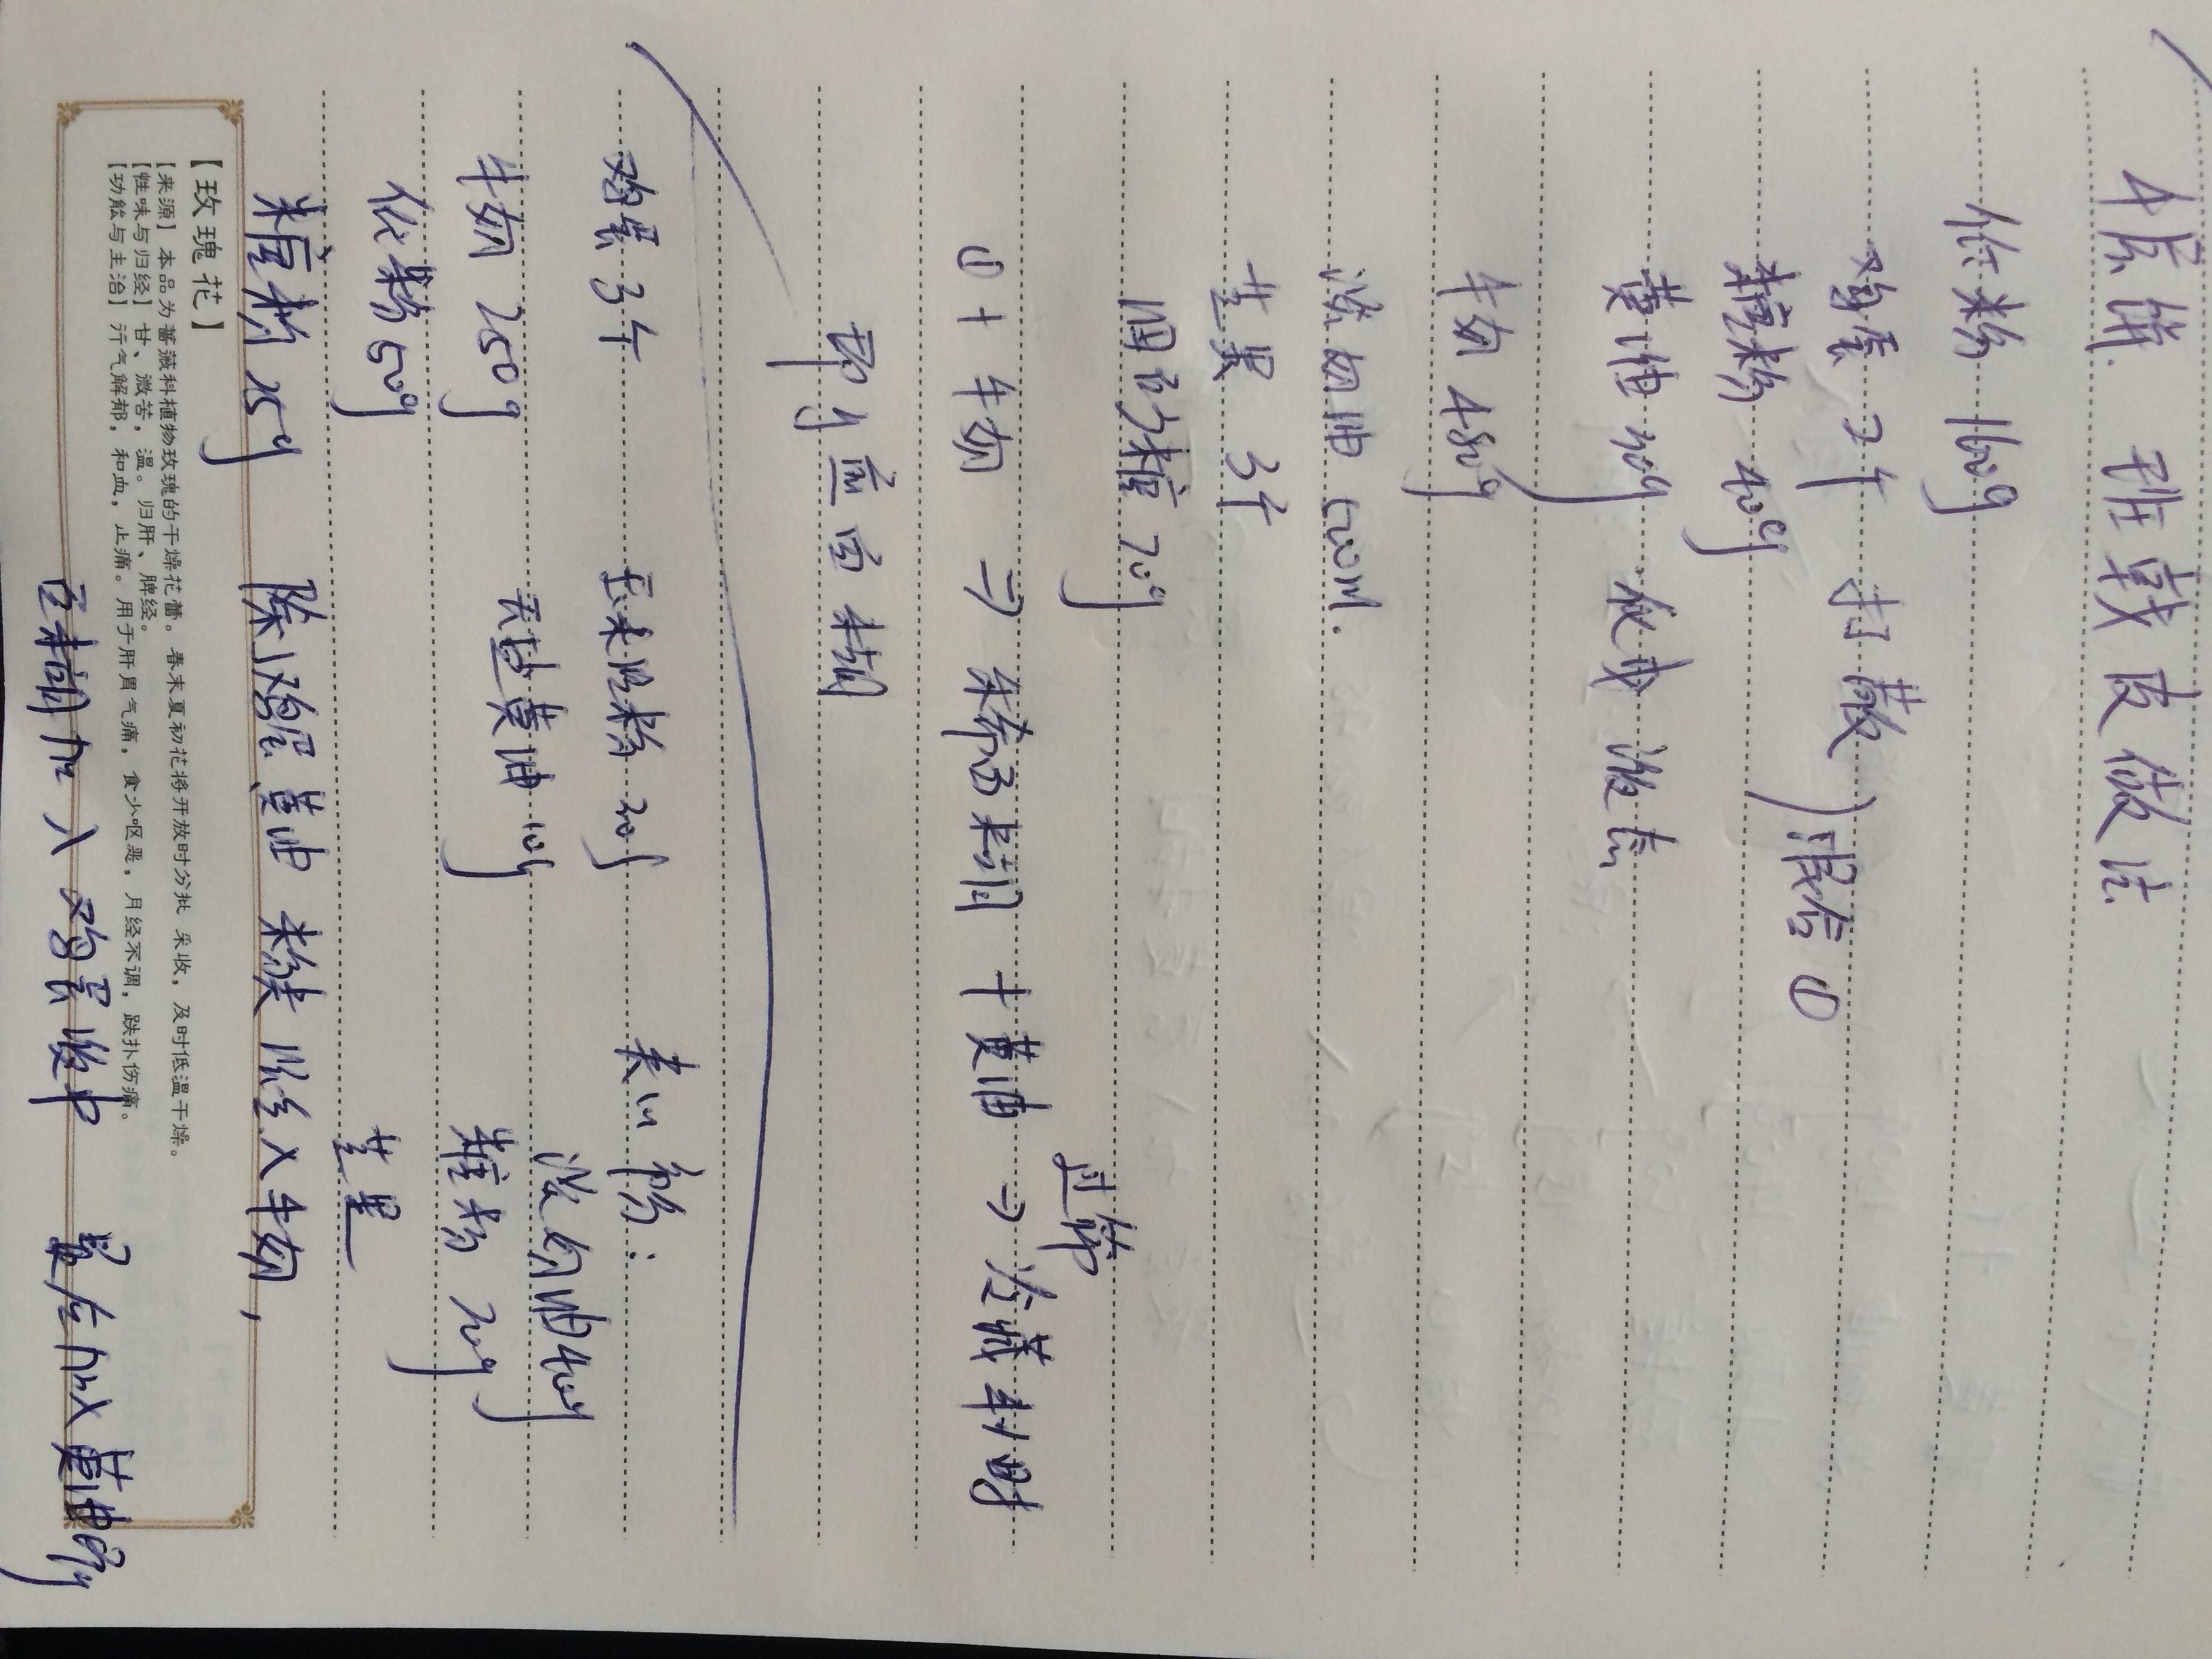 千层饼. 班戟皮做法
低粉 160g
鸡蛋 7个 打散
糖粉 40g )混合①
黄油 20g 化成液态
牛奶 480g
淡奶油 500ml.
芒果 3个
细砂糖 70g
过筛
①+牛奶 ⇒ 稀面糊 + 黄油 ⇒ 冷藏半小时
即可煎面糊
鸡蛋 3个 玉米淀粉 20g 夹心部:
牛奶 250g 无盐黄油 10g 淡奶油 40g
低粉 50g 糖粉 20g
糖粉 25g 芒果
除鸡蛋、黄油 粉类 混合入牛奶,
【玫瑰花】
[来源] 本品为蔷薇科植物玫瑰的干燥花蕾。春末夏初花将开放时分批采收，及时低温干燥。
[性味与归经] 甘、微苦，温。归肝、脾经。
[功能与主治] 行气解郁，和血，止痛。用于肝胃气痛，食少呕恶，月经不调，跌扑伤痛。
面糊加入 鸡蛋液中 最后加入黄油